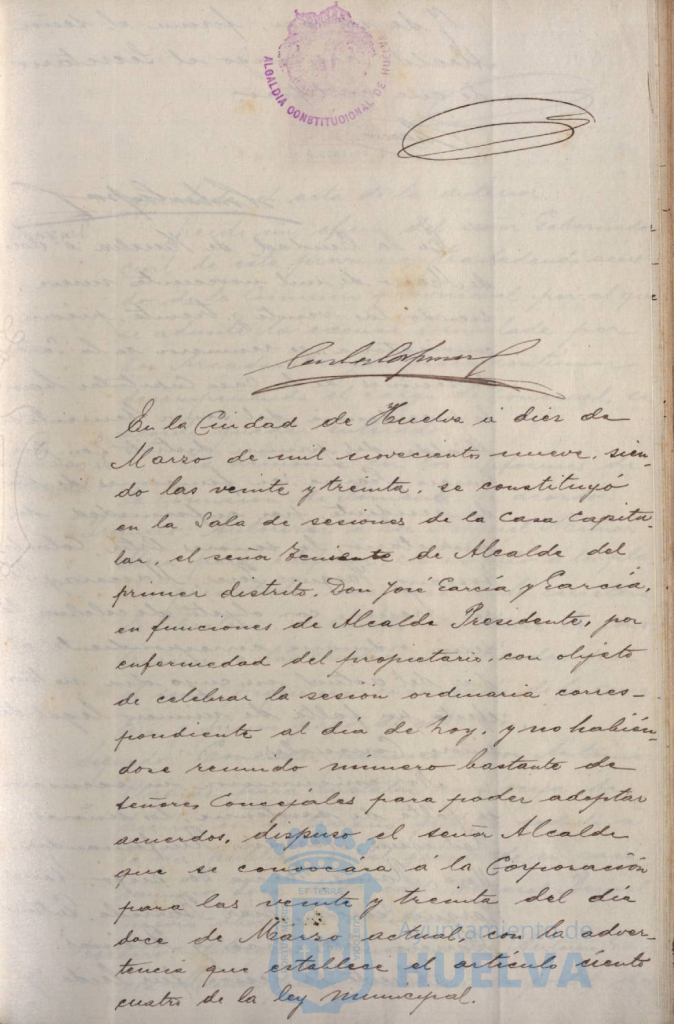 ALCALDÍA CONSTITUCIONAL DE HUELVA
En la Ciudad de Huelva á diez de
Marzo de mil novecientos nueve, sien-
do las veinte y treinta, se constituyó
en la Sala de sesiones de la Casa Capitu-
lar, el señor Teniente de Alcalde del
primer distrito, Don José García y García,
en funciones de Alcalde Presidente, por
enfermedad del propietario, con objeto
de celebrar la sesión ordinaria corres-
pondiente al día de hoy, y no habién-
dose reunido número bastante de
señores Concejales para poder adoptar
acuerdos, dispuso el señor Alcalde
que se convocára á la Corporación
para las veinte y treinta del día
doce de Marzo actual, con la adver-
tencia que establece el artículo ciento
cuatro de la ley municipal.
Ayuntamiento de
HUELVA